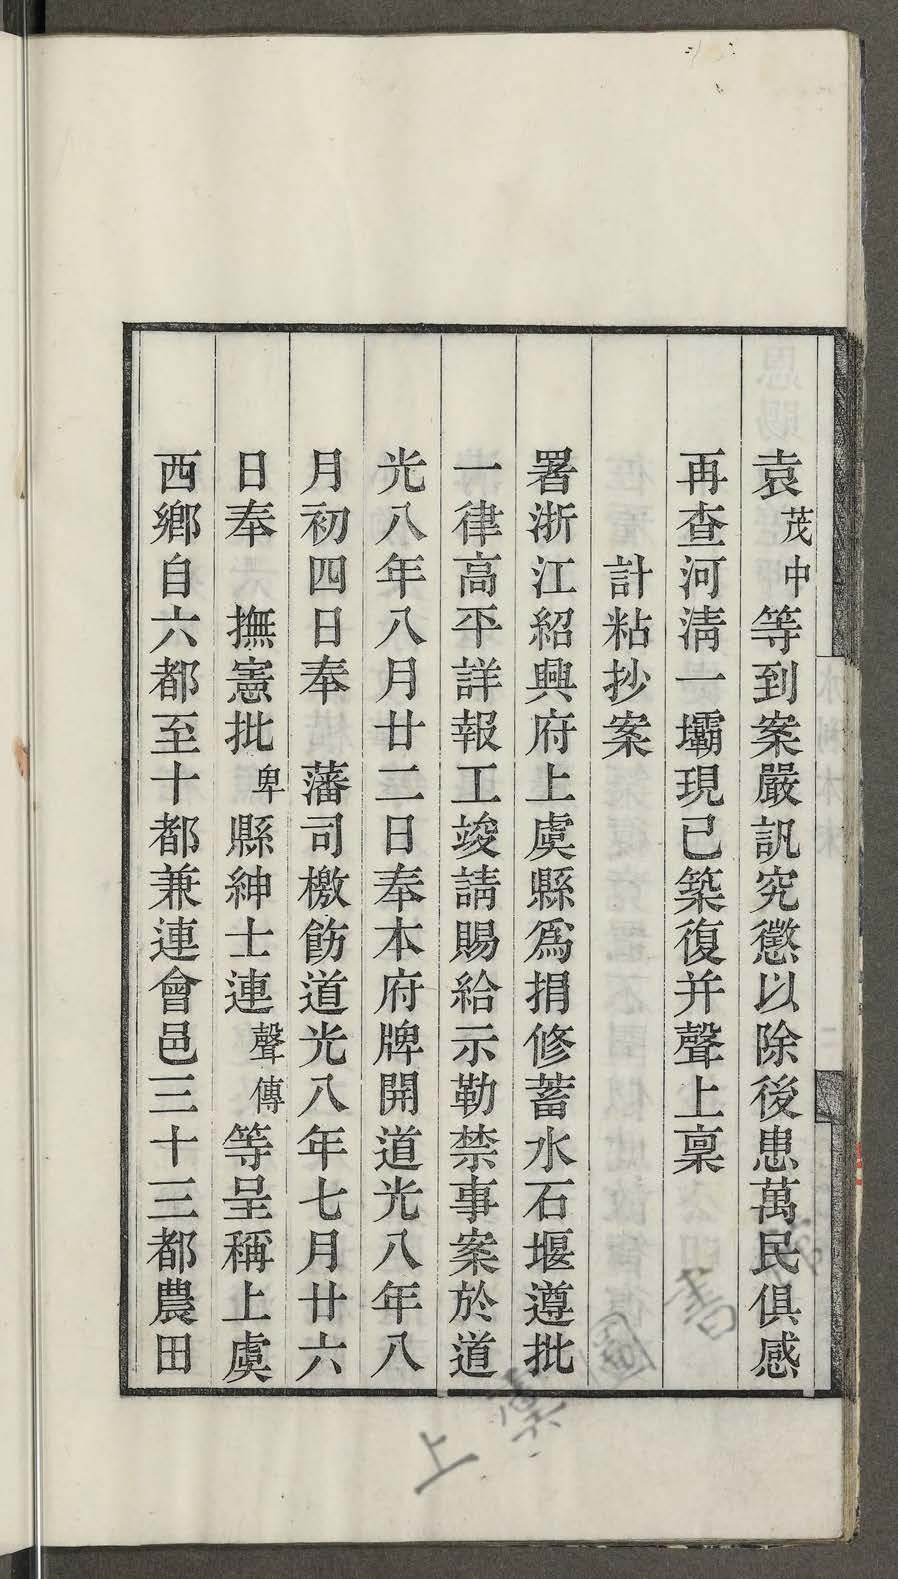 袁茂中等到案嚴訊究懲以除後患萬民俱感
再查河清一壩現已築復并聲上稟
計粘抄案
署浙江紹興府上虞縣爲捐修蓄水石堰遵批
一律高平詳報工竣請賜給示勒禁事案於道
光八年八月廿二日奉本府牌開道光八年八
月初四日奉 藩司檄飭道光八年七月廿六
日奉 撫憲批卑縣紳士連聲傳等呈稱上虞
西鄉自六都至十都兼連會邑三十三都農田
上虞圖書